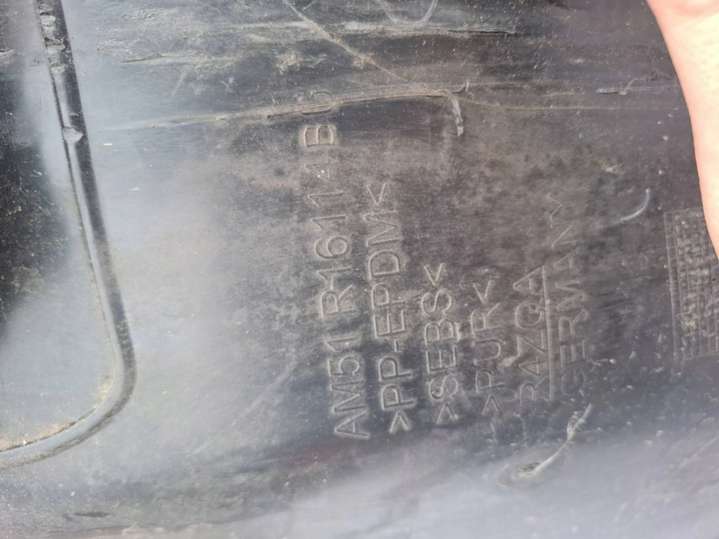 AM51 R16114 B
>PP-EPDM<
>SEBS<
>PUR<
RAZGA
GERMANY